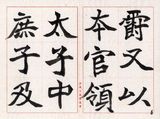 爵又以
夲官領
太子中
庶子及